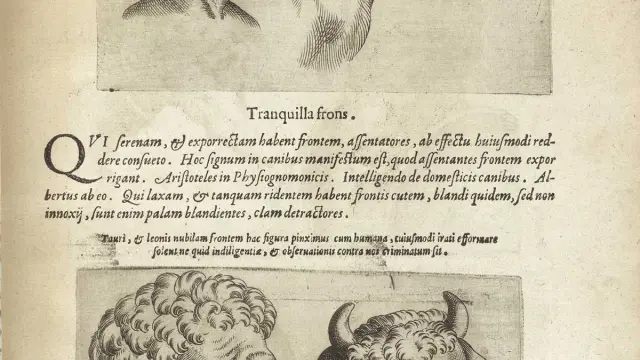 Tranquilla frons.
QVI serenam, & exporrectam habent frontem, assentatores, ab effectu huiusmodi red-
dere consueto. Hoc signum in canibus manifestum est, quod assentantes frontem expor
rigant. Aristoteles in Physiognomonicis. Intelligendo de domesticis canibus. Al-
bertus ab eo. Qui laxam, & tanquam ridentem habent frontis cutem, blandi quidem, sed non
innoxij, sunt enim palam blandientes, clam detractores.
Tauri, & leonis nubilam frontem hac figura pinximus cum humana, cuiusmodi irati efformare
solent ne quid indiligentiæ, & obseruationis contra nos criminatum sit.